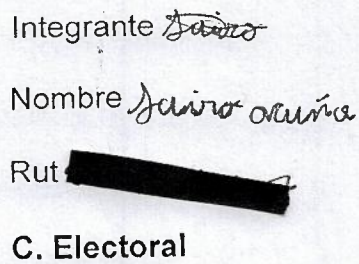 Integrante Jairo
Nombre Jairo acuña
Rut
C. Electoral